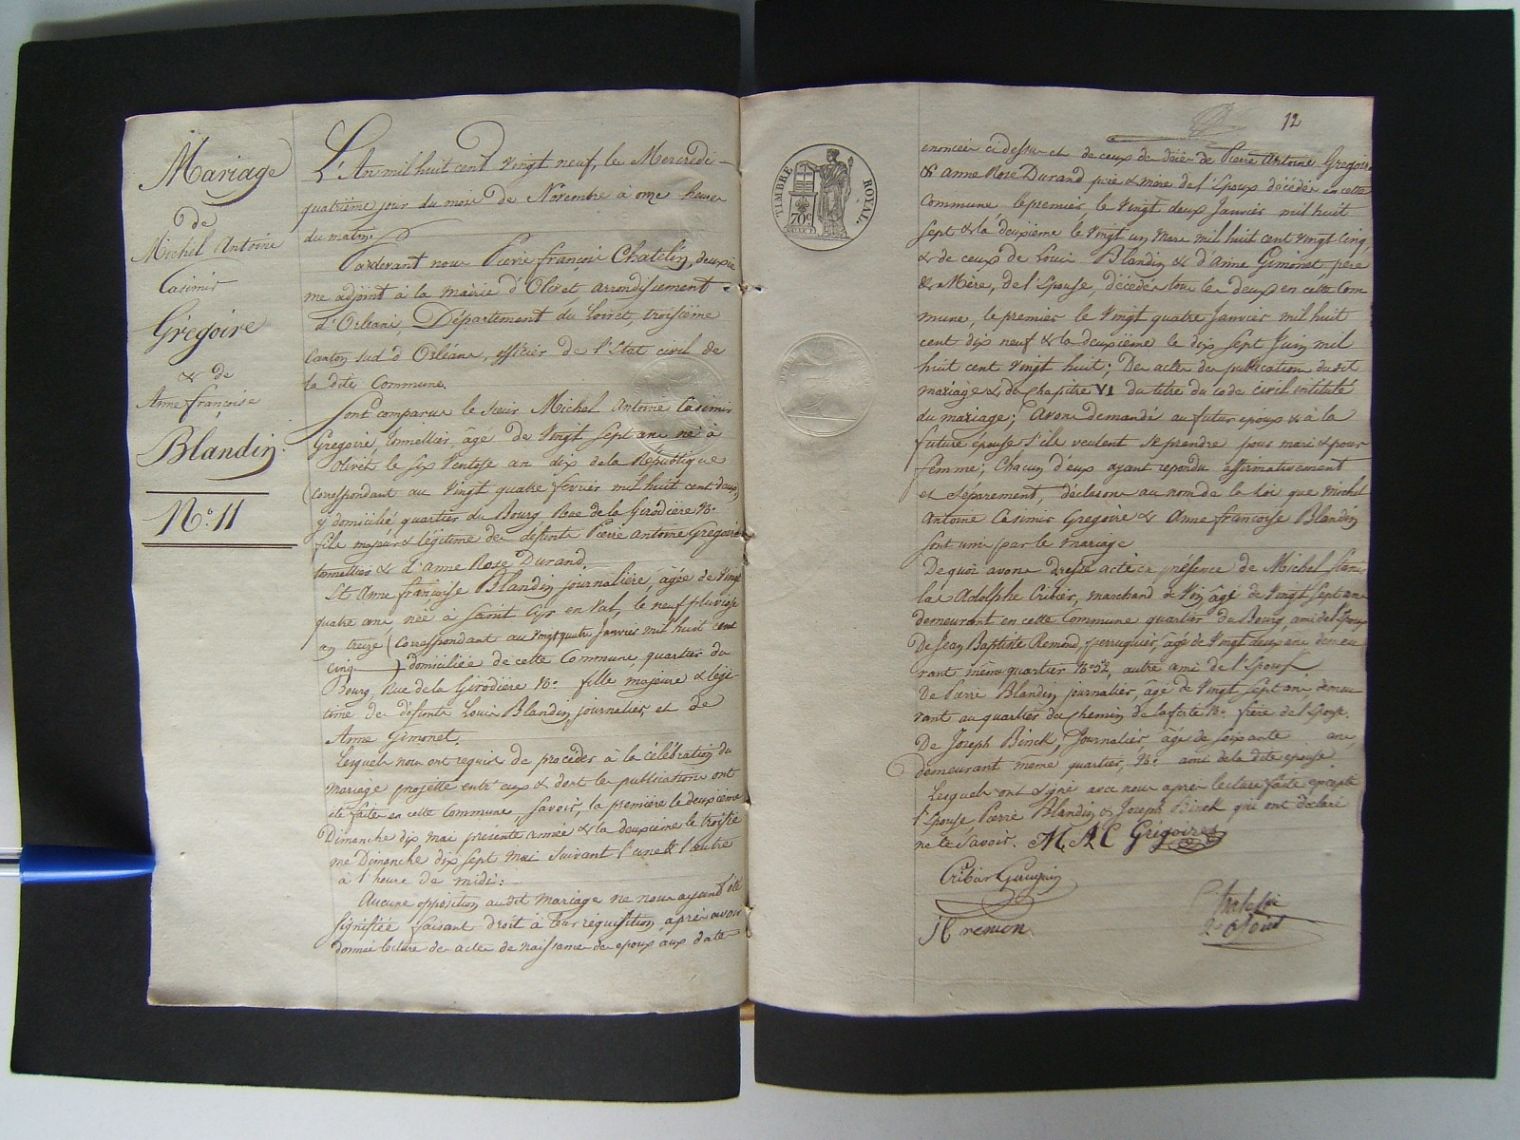 Mariage
de
Michel Antoine
Casimir
Grégoire
& de
Anne françoise
Blandin.
N.º 11
L'An mil huit cent vingt neuf, le Mercredi
quatrième jour du mois de Novembre à onze heures
du matin.
Pardevant nous Pierre françois Chatelin, deuxiè
me adjoint à la mairie d'Olivet, arrondissement
d'Orléans, Département du Loiret, troisième
Canton sud d'Orléans, officier de l'Etat civil de
la dite Commune.
Sont comparus le sieur Michel Antoine Casimir
Gregoire, tonnellier, âgé de vingt sept ans né à
Olivet le six Ventose an dix de la République
(correspondant au vingt quatre fevrier mil huit cent deux)
y domicilié quartier du Bourg Rue de la Girodière Nº
fils majeur & légitime de défunts Pierre Antoine Gregoire
tonnellier & d'Anne Rose Durand.
Et Anne françoise Blandin journalière, âgée de vingt
quatre ans née à Saint Cyr en Val, le neuf pluviose
an treize (Correspondant au vingt quatre Janvier mil huit cent
cinq) domiciliée de cette Commune quartier du
Bourg Rue de la Girodière Nº fille majeure & légi
time de défunts Louis Blandin, journalier, et de
Anne Gimonet.
Lesquels nous ont requis de procéder à la célébration du
mariage projetté entr'eux & dont les publications ont
été faites en cette Commune savoir, la première le deuxième
Dimanche dix mai présente année & la deuxième le troisiè
me Dimanche dix sept mai suivant l'une & l'autre
à l'heure de midi:
Aucune opposition audit mariage ne nous ayant été
signifiée faisant droit à leur réquisition, après avoir
donné lecture des actes de naissance des epoux aux dates
12
TIMBRE ROYAL.
70c
enoncées cidessus et de ceux de décès de Pierre Antoine Gregoire
& Anne Rose Durand père & mère de l'Epoux décédés en cette
Commune le premier le vingt deux Janvier mil huit
sept & la deuxième le vingt un Mars mil huit cent vingt cinq,
& de ceux de Louis Blandin & d'Anne Gimonet, père
& Mère, de l'Epouse, décédés tous les deux en cette Com
mune, le premier le vingt quatre Janvier mil huit
cent dix neuf & la deuxième le dix sept Juin mil
huit cent vingt huit; Des actes de publication dudit
mariage & du chapitre VI du titre du code civil intitulé
du mariage; Avons demandé au futur epoux & à la
future épouse s'ils veulent se prendre pour mari & pour
femme; chacun d'eux ayant repondu affirmativement
et séparement, déclarons au nom de la Loi que Michel
Antoine Casimir Gregoire & Anne françoise Blandin
sont unis par le mariage
De quoi avons dressé acte en présence de Michel Stanis
las Adolphe Cribier, marchand de Vin âgé de vingt sept ans
demeurant en cette Commune quartier du Bourg, ami de l'Epoux
De Jean Baptiste Remond, perruquier, âgé de vingt deux ans demeu
rant même quartier Nº 52, autre ami de l'Epoux
De Pierre Blandin journalier, âgé de vingt sept ans demeu
rant au quartier du chemin de la ferté Nº frère de l'Epouse.
De Joseph Binck, Journalier âgé de soixante ans,
demeurant meme quartier, Nº ami de la dite epouse.
Lesquels ont signé avec nous après lecture faite excepté
l'Epouse Pierre Blandin & Joseph Binck qui ont déclaré
ne le savoir. M. A C Grégoire
Cribier
Chatelin